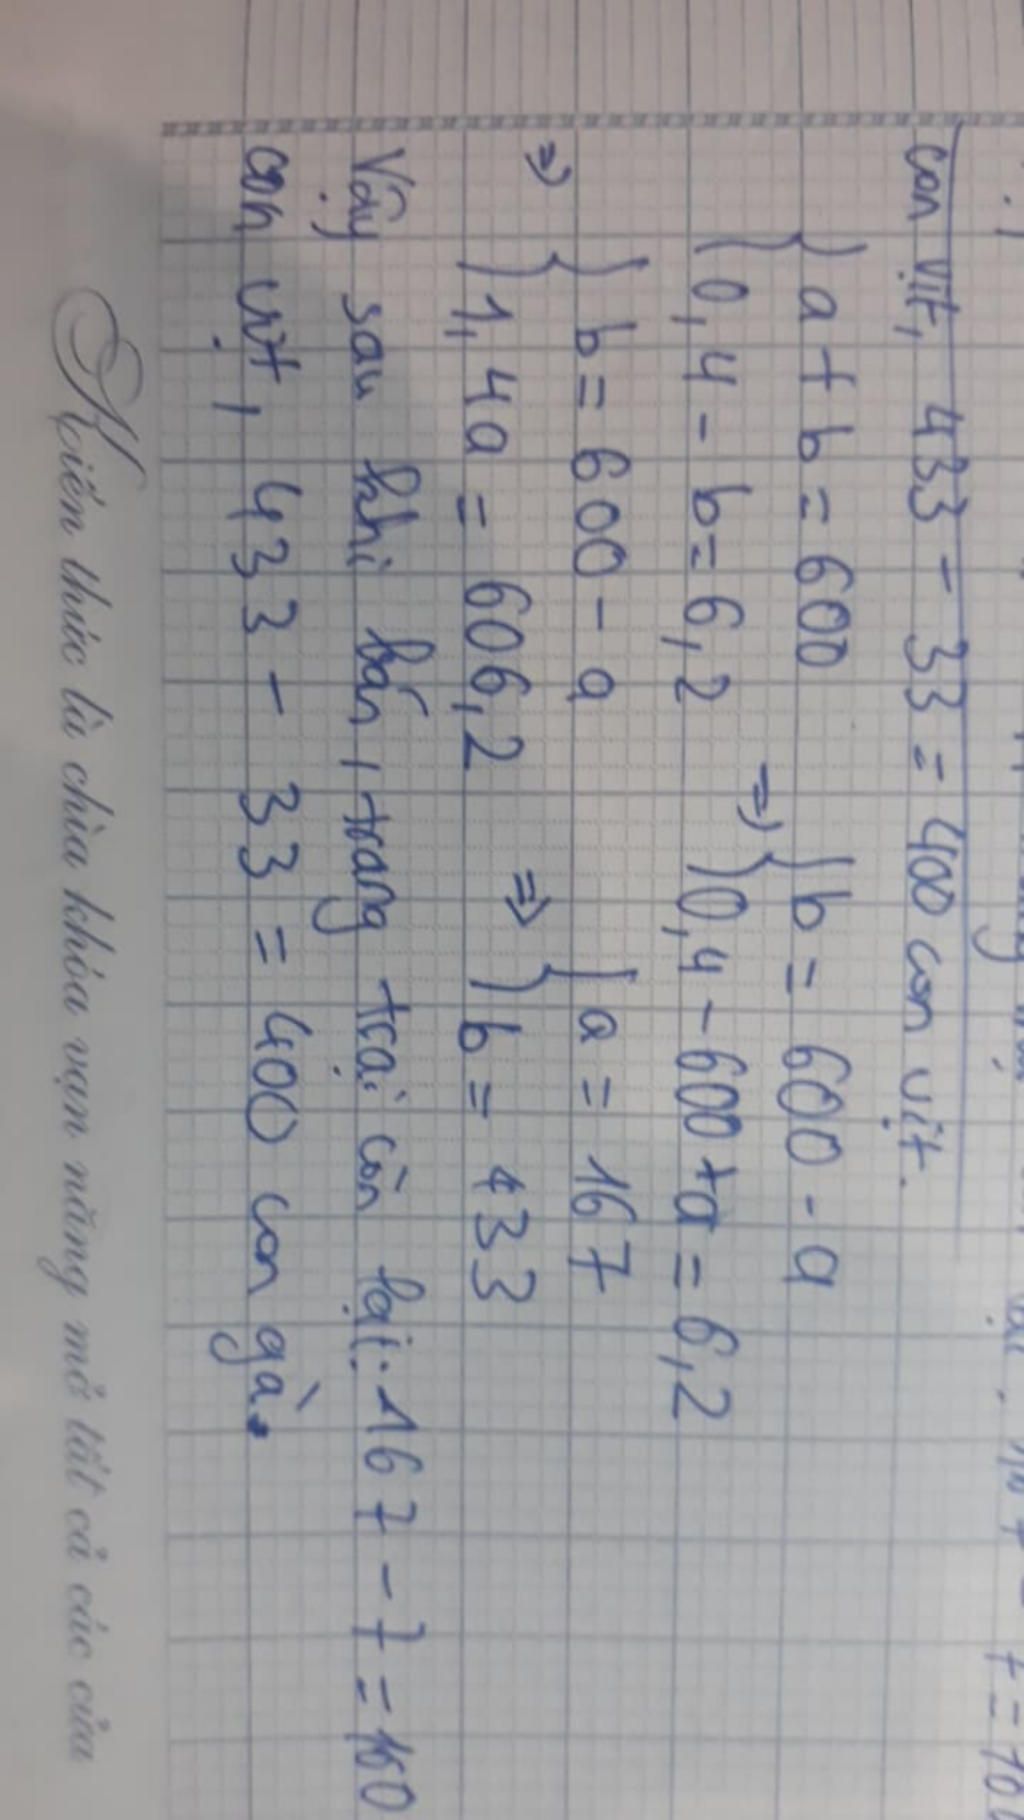 con vịt, 433 - 33 = 400 con vịt.
{ a + b = 600
{ 0,4 - b = 6,2
=> { b = 600 - a
{ 0,4 - 600 + a = 6,2
=> { b = 600 - a
{ 1,4a = 606,2
=> { a = 167
{ b = 433
Vậy sau khi bán, trang trại còn lại: 167 - 7 = 160
con vịt, 433 - 33 = 400 con gà.
Kiến thức là chìa khóa vạn năng mở tất cả các cửa